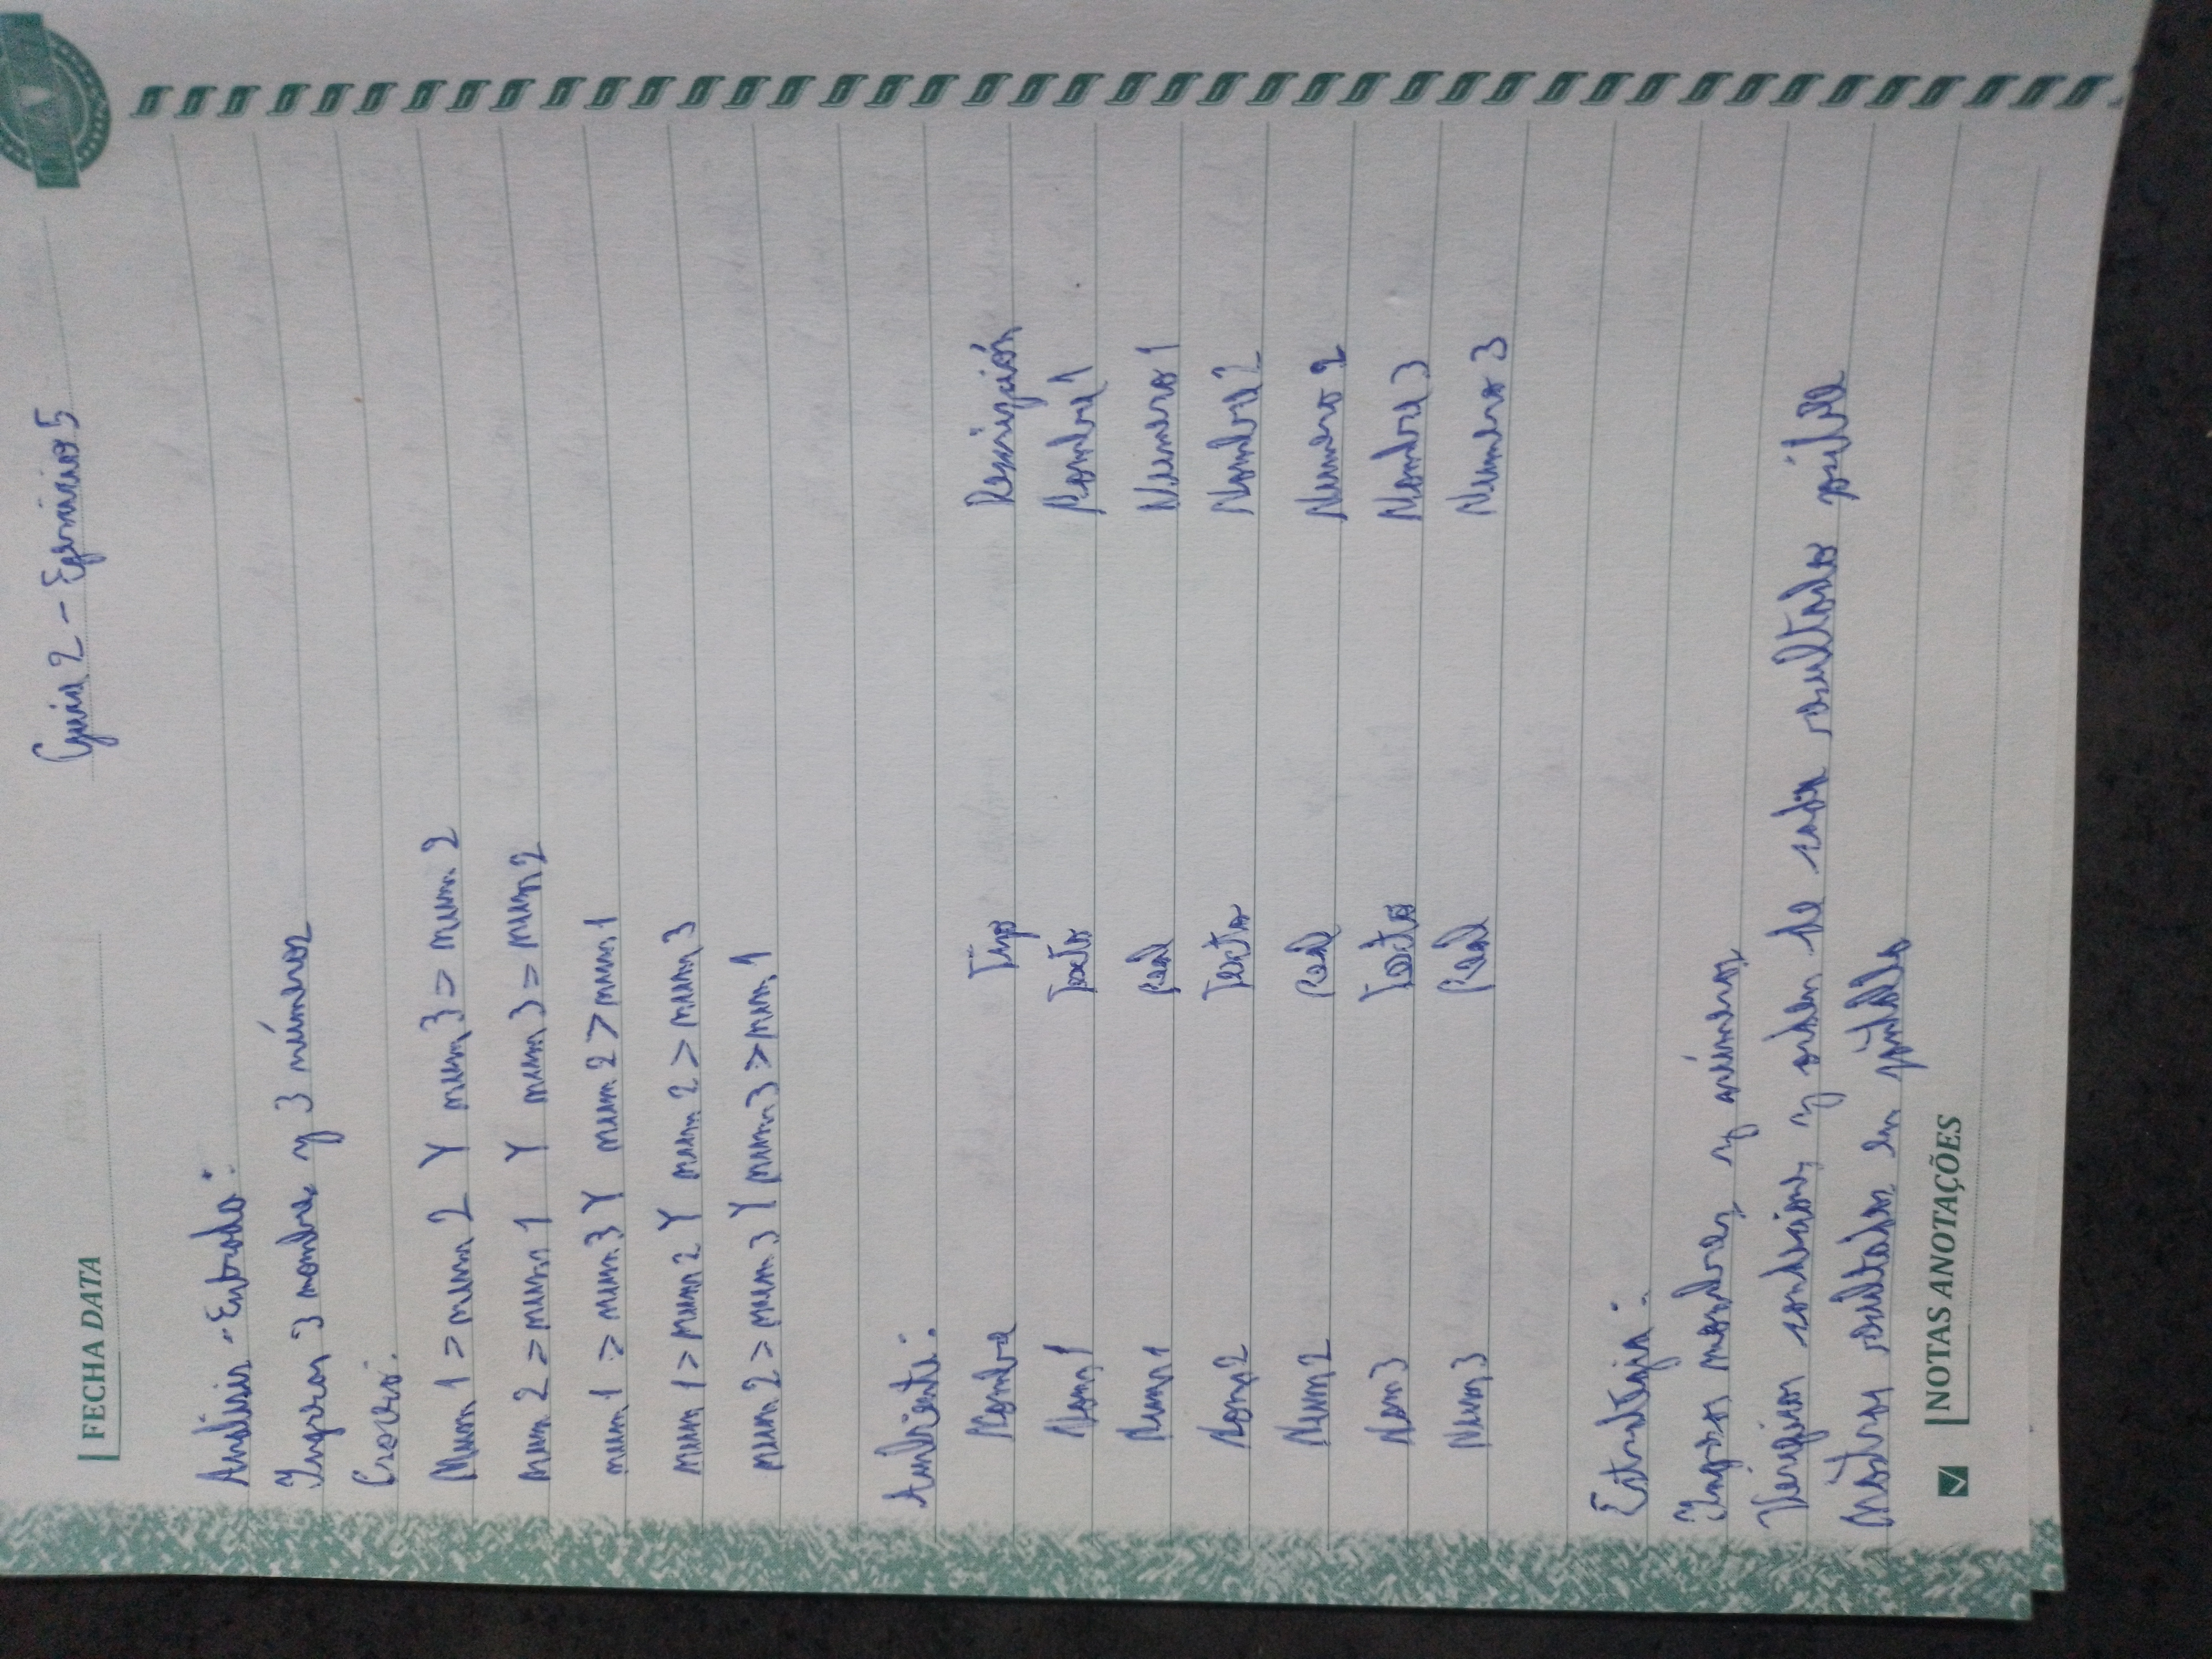 FECHA DATA
Guia 2 - Ejercicio 5
Análisis - Entrada:
Ingresar 3 nombres y 3 números
Proceso:
Num 1 > num 2 Y num 3 > num 2
num 2 > num 1 Y num 3 > num 2
num 1 > num 3 Y num 2 > num 1
num 1 > num 2 Y num 2 > num 3
num 2 > num 3 Y num 3 > num 1
Ambiente:
Nombre Tipo Descripción
Nom 1 Texto Nombre 1
Num 1 Real Numero 1
Nom 2 Texto Nombre 2
Num 2 Real Numero 2
Nom 3 Texto Nombre 3
Num 3 Real Numero 3
Estrategia:
Ingresar nombres y números
Verificar condiciones y orden de cada resultado posible
Mostrar resultados en pantalla
NOTAS ANOTAÇÕES